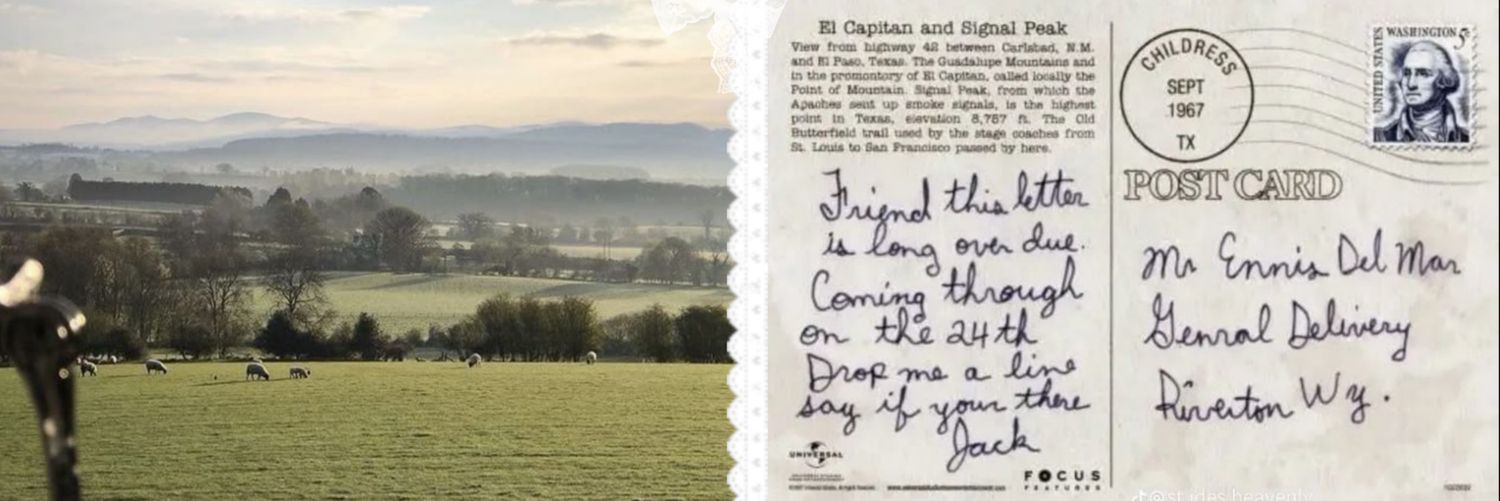 El Capitan and Signal Peak
View from highway 42 between Carlsbad, N.M.
and El Paso, Texas. The Guadalupe Mountains and
in the promontory of El Capitan, called locally the
Point of Mountain. Signal Peak, from which the
Apaches sent up smoke signals, is the highest
point in Texas, elevation 8,787 ft. The Old
Butterfield trail used by the stage coaches from
St. Louis to San Francisco passed by here.
Friend this letter
is long over due.
Coming through
on the 24th
Drop me a line
say if your there
Jack
UNIVERSAL
FOCUS
FEATURES
CHILDRESS
SEPT
1967
TX
UNITED STATES
WASHINGTON 5¢
POST CARD
Mr Ennis Del Mar
Genral Delivery
Riverton Wy.
@st.ides.heavenly